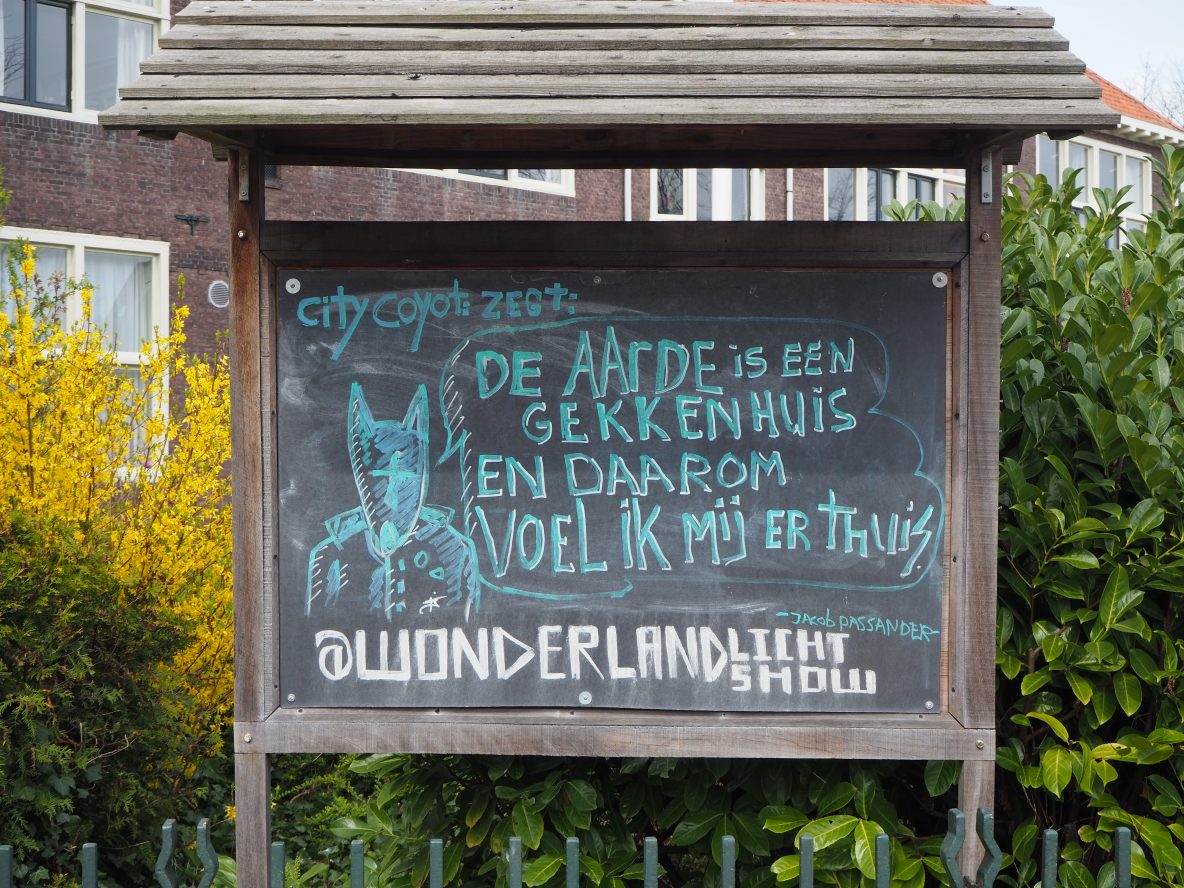 City Coyot: ZEGT:
DE AARDE is EEN
GEKKENHUiS
EN DAAROM
VOEL iK Mij ER THUiS!
-JACob pASSANDER-
@WONDERLANDLICHT
SHOW